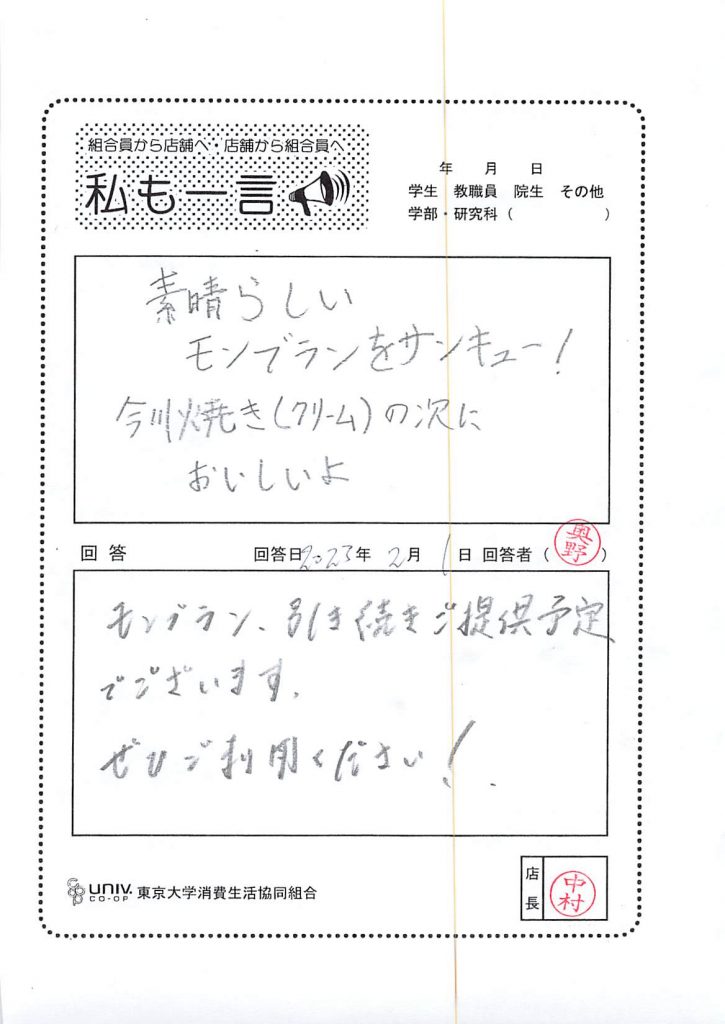 組合員から店舗へ・店舗から組合員へ
私も一言
年 月 日
学生 教職員 院生 その他
学部・研究科 ( )
素晴らしい
モンブランをサンキュー!
今川焼き(クリーム)の次に
おいしいよ
回答 回答日2023年 2月 1日 回答者 (奥野)
モンブラン、引き続きご提供予定
でございます。
ぜひご利用ください!
UNIV. CO-OP 東京大学消費生活協同組合
店長 中村